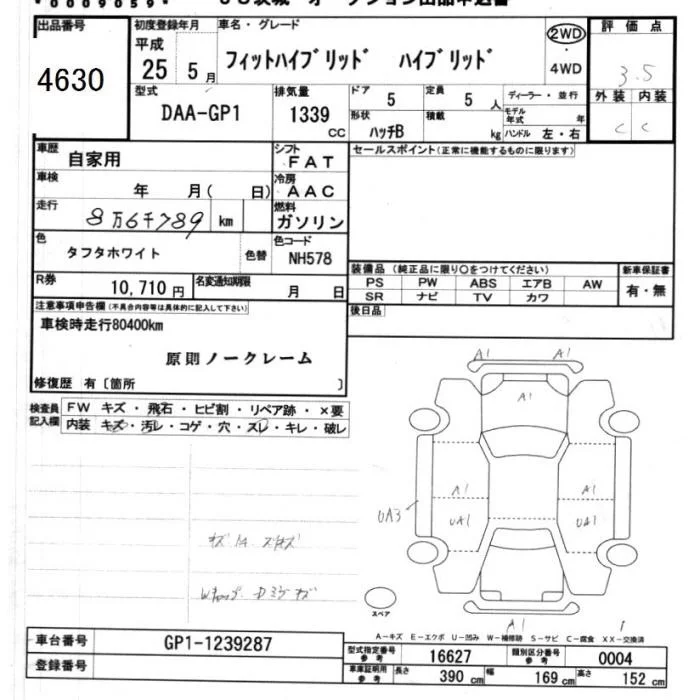 出品番号
4630
初度登録年月
平成
25 5月
車名・グレード
フィットハイブリッド ハイブリッド
2WD
4WD
評価点
3.5
外装 内装
C C
型式
DAA-GP1
排気量
1339
CC
ドア
5
定員
5 人
形状
ハッチB
積載
kg
ディーラー・並行
モデル年式 年
ハンドル 左・右
車歴
自家用
シフト
FAT
車検
年 月( 日)
冷房
AAC
走行
8万6千789 km
燃料
ガソリン
色
タフタホワイト
色替
色コード
NH578
R券
10,710 円
名変通知期限
月 日
セールスポイント(正常に機能するものに限ります)
装備品 (純正品に限り○をつけてください)
PS PW ABS エアB AW
SR ナビ TV カワ
新車保証書
有・無
後日品
注意事項申告欄(不具合内容等は具体的に記入して下さい)
車検時走行80400km
原則ノークレーム
修復歴 有〔箇所 〕
検査員
記入欄
FW キズ・飛石・ヒビ割・リペア跡・×要
内装 キズ・汚レ・コゲ・穴・スレ・キレ・破レ
A1 A1
A1
A1 A1
UA3 UA1 UA1
A1
スペア
A-キズ E-エクボ U-凹み W-補修跡 S-サビ C-腐食 XX-交換済
車台番号
GP1-1239287
登録番号
型式指定番号
参考
16627
類別区分番号
参考
0004
車庫証明用
参考
長さ 390 cm 幅 169 cm 高さ 152 cm